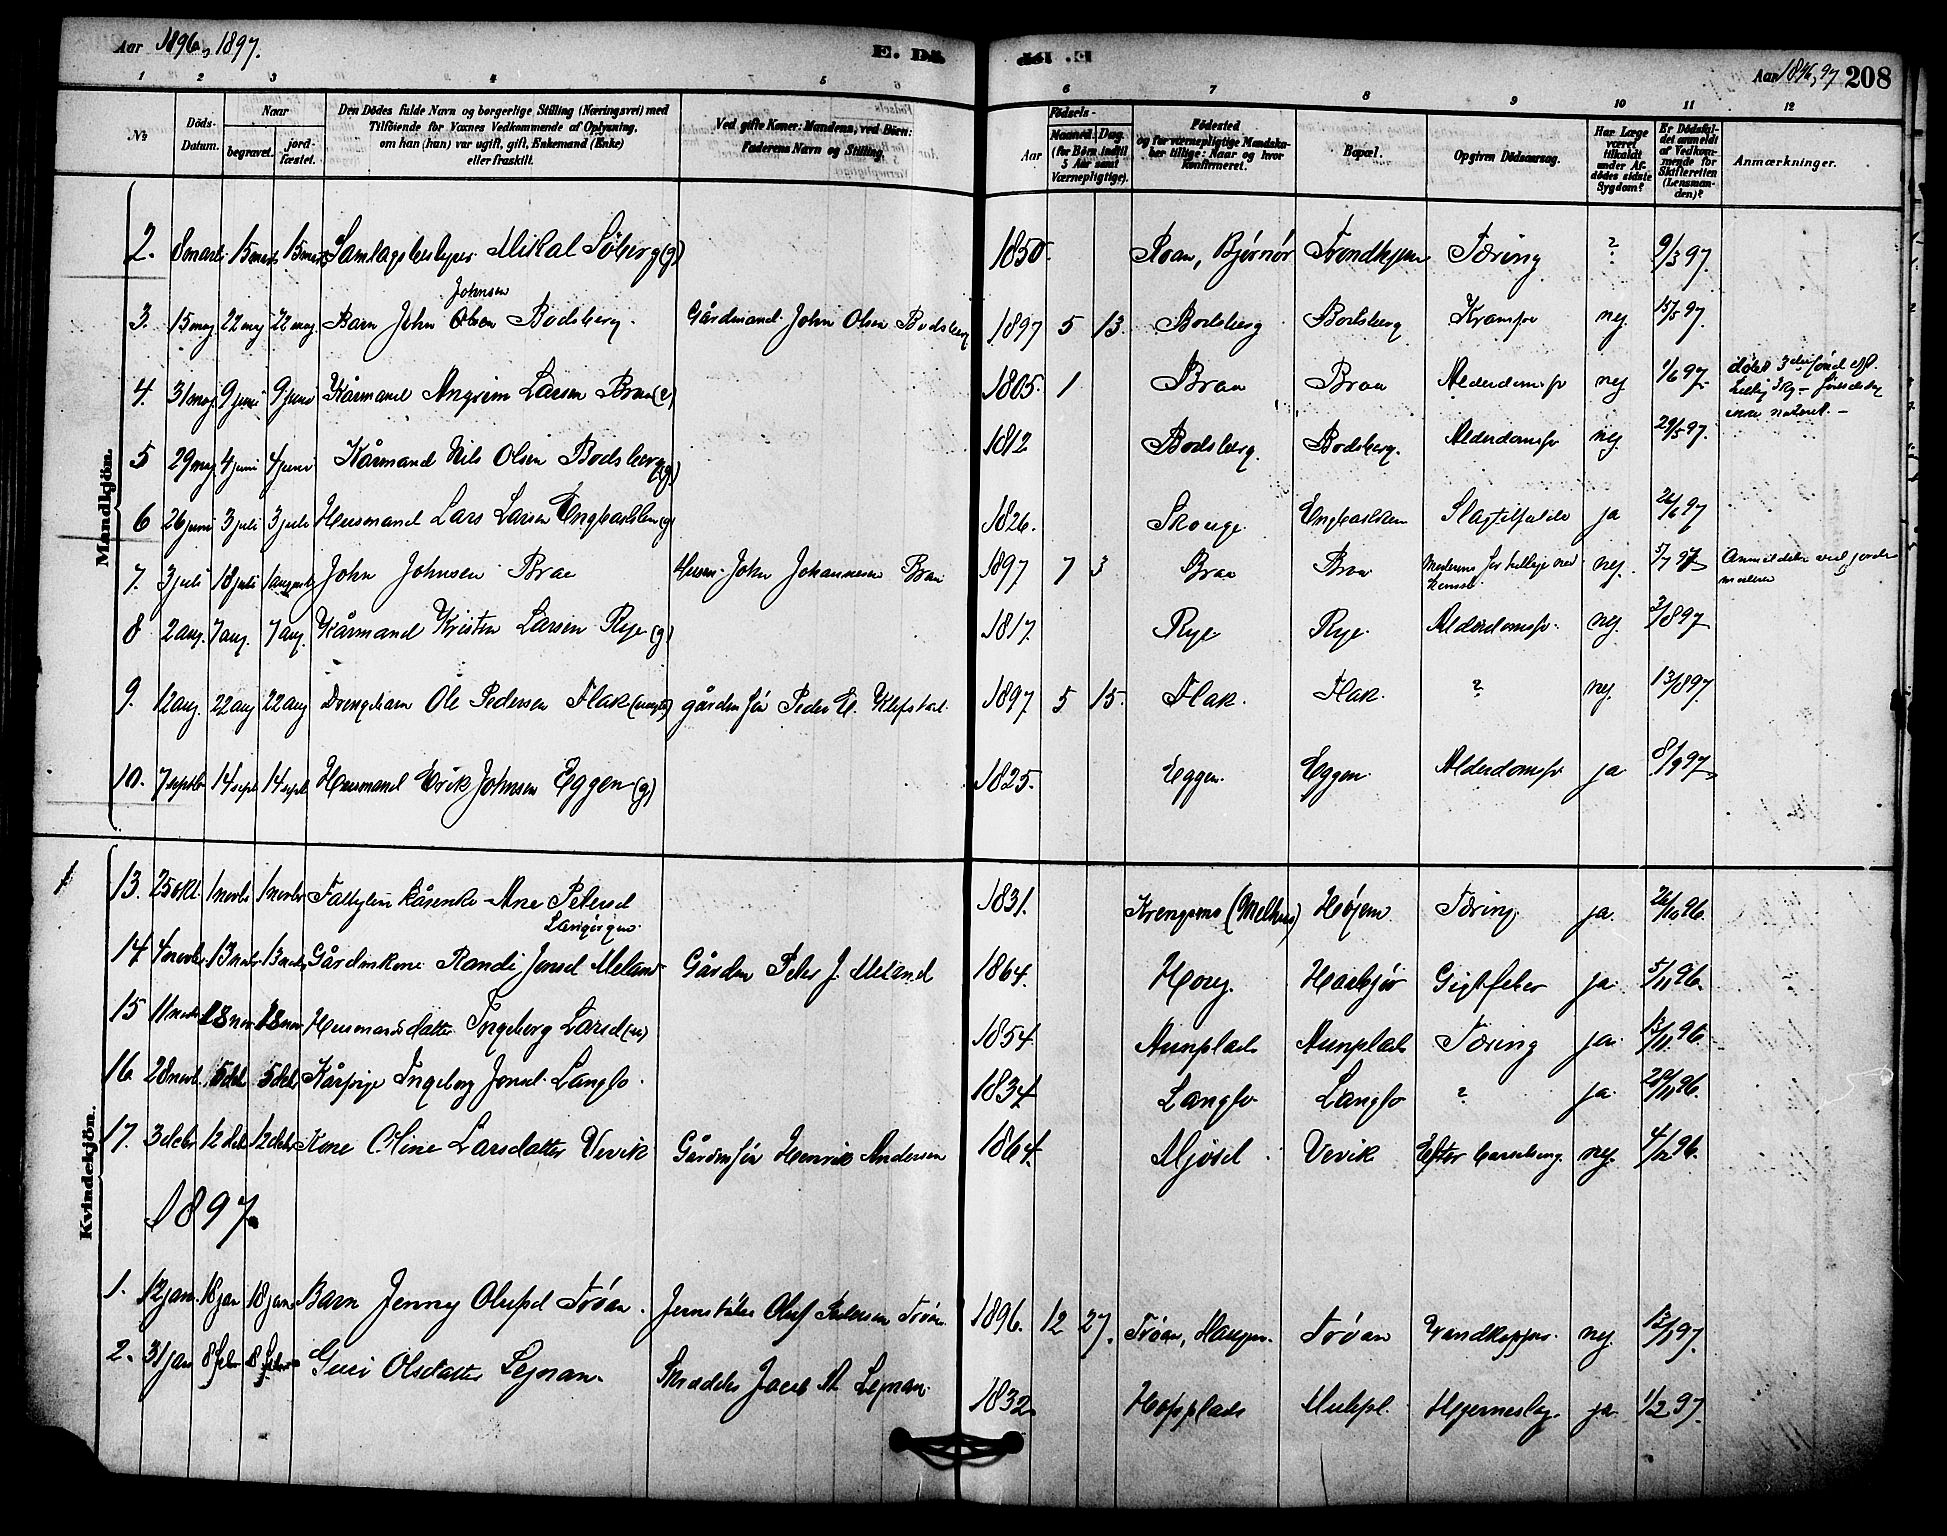 Aar 1896, 1897.
E. Dö
Aar 1896, 97 208
1 2 3 4 5 6 7 8 9 10 11 12
№ Döds-Datum. Naar begravet. jord-fæstet. Den Dødes fulde Navn og borgerlige Stilling (Næringsvei) med Tilføiende for Voxnes Vedkommende af Oplysning, om han (hun) var ugift, gift, Enkemand (Enke) eller fraskilt. Ved gifte Koner: Mandens, ved Börn: Faderens Navn og Stilling. Fødsels- Aar Maaned. Dag. (for Børn indtil 5 Aar samt Værnepligtige). Födested og for værnepligtige Mandskaber tillige: Naar og hvor konfirmeret. Bopæl. Opgiven Dödsaarsag. Har Læge været tilkaldt under Afdödes sidste Sygdom? Er Dödsfaldet anmeldt af Vedkommende for Skifteretten (Lensmanden)? Anmærkninger.
Mandkjön.
2. 8 marts 15 marts 15 marts Samlagsbestyrer Mikal Söberg (g) 1850. Roan, Bjørnør Trondhjem Tæring ? 9/3 97.
3. 15 maj 22 maj 22 maj Barn John Johnsen Olsen Bodsberg. Gårdmand John Olsen Bodsberg 1897 5 13. Bodsberg Bodsberg Krampe nej 15/5 97.
4. 31 maj 9 juni 9 juni Kårmand Angrim Larsen Braa (e) 1805. 1 Braa Braa Alderdomssv nej 1/6 97.
5 29 maj 4 juni 4 juni Kårmand Nils Olsen Bodsberg (g) 1812 Bodsberg. Bodsberg. Alderdomssv nej 29/5 97.
6 26 juni 3 juli 3 juli Husmand Lars Larsen (g) 1826. Skouge Slagtilfælde ja 26/6 97
7. 3 juli 18 juli 1 august John Johnsen Braa Husm. John Johannesen Braa 1897 7 3 Braa Braa nej. 5/7 97
8 2 aug. 7 aug. 7 aug. Kårmand Kristen Larsen Rye (g) 1817. Rye. Rye. Alderdomssv. nej. 3/8 97
9. 12 aug. 22 aug 22 aug Drengebarn Ole Pedersen Flak gårdm før Peder E. Klefstad. 1897 5 15. Flak. Flak. ? nej. 13/8 97.
10. 7 septbr 14 sept 14 sept Husmand Erik Johnsen Eggen (g) 1825. Eggen. Eggen. Alderdomssv ja 8/9 97.
Kvindekjön.
13. 25 okt. 1 novbr 1 novbr kårenke Ane Petersd 1831. (Melhus) Høiem Tæring ja. 26/10 96.
14 4 novbr 13 novbr 13 novbr Gårdmkone Randi Jonsd Meland Gårdm Peter J. Meland 1864. Horg. Gigtfeber ja 5/11 96.
15 11 novbr 18 nov 18 nov Husmandsdatter Ingeborg Larsd (u) 1854. Aunplads Aunplads Tæring ja. 13/11 96.
16. 28 novb. 5 debr 5 debr Kårpige Ingeborg Jonsd. Langlo. 1834 Langlo Langlo ? ja 28/11 96.
17. 3 debr 12 debr 12 debr Kone Oline Larsdatter Vevik Gårdm før Henrik Andersen 1864. Mjösd Vevik Efter barselseng. nej. 4/12 96.
1897.
1. 12 jan. 18 jan 18 jan. Barn Jenny Olufsd Tröan. Oluf Pedersen Tröan. 1896. 12 27. Tröan, Tröan Vandkopper. nej. 13/1 97.
2. 31 jan 8 febr 8 febr Guri Olsdatter Lejnan. Skrædder Jacob A Lejnan. 1832. Hopplads ja 1/2 97.